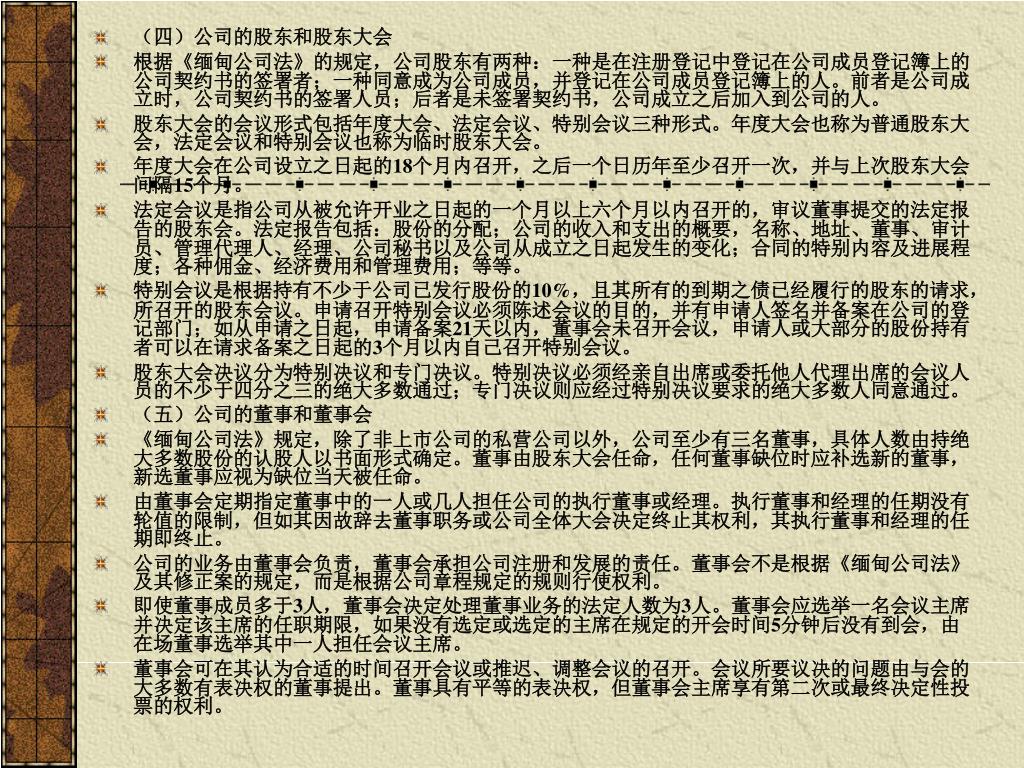 （四）公司的股东和股东大会
根据《缅甸公司法》的规定，公司股东有两种：一种是在注册登记中登记在公司成员登记簿上的
公司契约书的签署者；一种同意成为公司成员，并登记在公司成员登记簿上的人。前者是公司成
立时，公司契约书的签署人员；后者是未签署契约书，公司成立之后加入到公司的人。
股东大会的会议形式包括年度大会、法定会议、特别会议三种形式。年度大会也称为普通股东大
会，法定会议和特别会议也称为临时股东大会。
年度大会在公司设立之日起的18个月内召开，之后一个日历年至少召开一次，并与上次股东大会
间隔15个月。
法定会议是指公司从被允许开业之日起的一个月以上六个月以内召开的，审议董事提交的法定报
告的股东会。法定报告包括：股份的分配；公司的收入和支出的概要，名称、地址、董事、审计
员、管理代理人、经理、公司秘书以及公司从成立之日起发生的变化；合同的特别内容及进展程
度；各种佣金、经济费用和管理费用；等等。
特别会议是根据持有不少于公司已发行股份的10%，且其所有的到期之债已经履行的股东的请求，
所召开的股东会议。申请召开特别会议必须陈述会议的目的，并有申请人签名并备案在公司的登
记部门；如从申请之日起，申请备案21天以内，董事会未召开会议，申请人或大部分的股份持有
者可以在请求备案之日起的3个月以内自己召开特别会议。
股东大会决议分为特别决议和专门决议。特别决议必须经亲自出席或委托他人代理出席的会议人
员的不少于四分之三的绝大多数通过；专门决议则应经过特别决议要求的绝大多数人同意通过。
（五）公司的董事和董事会
《缅甸公司法》规定，除了非上市公司的私营公司以外，公司至少有三名董事，具体人数由持绝
大多数股份的认股人以书面形式确定。董事由股东大会任命，任何董事缺位时应补选新的董事，
新选董事应视为缺位当天被任命。
由董事会定期指定董事中的一人或几人担任公司的执行董事或经理。执行董事和经理的任期没有
轮值的限制，但如其因故辞去董事职务或公司全体大会决定终止其权利，其执行董事和经理的任
期即终止。
公司的业务由董事会负责，董事会承担公司注册和发展的责任。董事会不是根据《缅甸公司法》
及其修正案的规定，而是根据公司章程规定的规则行使权利。
即使董事成员多于3人，董事会决定处理董事业务的法定人数为3人。董事会应选举一名会议主席
并决定该主席的任职期限，如果没有选定或选定的主席在规定的开会时间5分钟后没有到会，由
在场董事选举其中一人担任会议主席。
董事会可在其认为合适的时间召开会议或推迟、调整会议的召开。会议所要议决的问题由与会的
大多数有表决权的董事提出。董事具有平等的表决权，但董事会主席享有第二次或最终决定性投
票的权利。